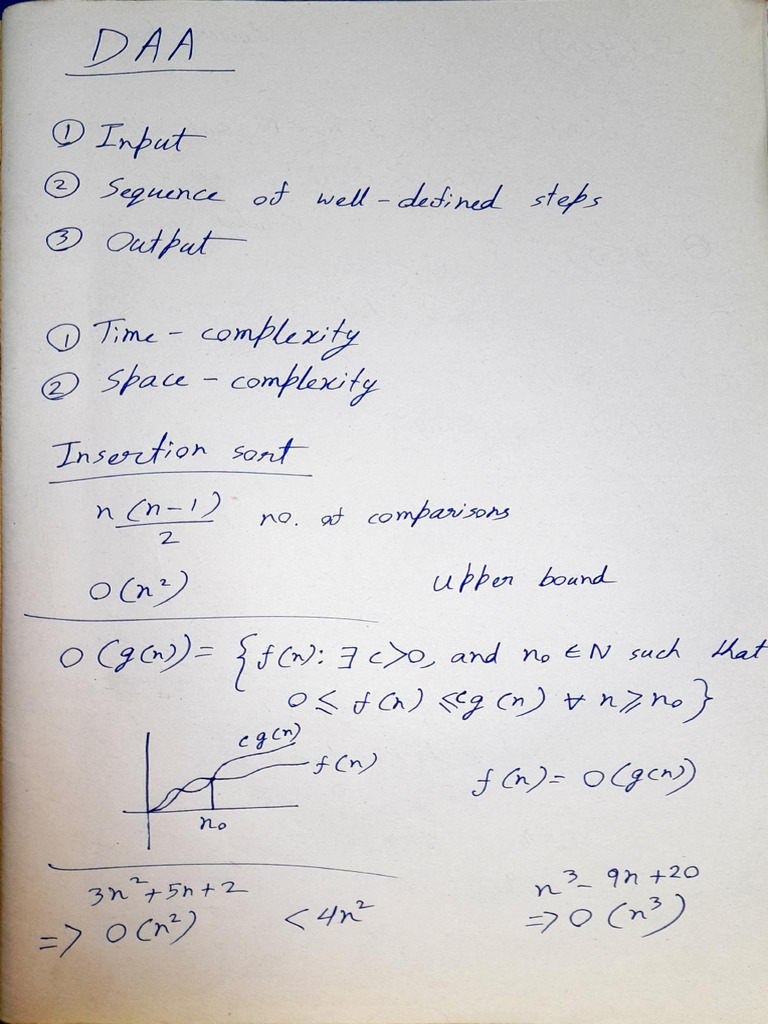 DAA
① Input
② Sequence of well-defined steps
③ Output
① Time-complexity
② Space-complexity
Insertion sort
n(n-1)/2 no. of comparisons
O(n²) upper bound
O(g(n)) = {f(n): ∃ c>0, and n₀ ∈ N such that
0 ≤ f(n) ≤ cg(n) ∀ n ≥ n₀}
cg(n)
f(n)
f(n) = O(g(n))
n₀
3n²+5n+2 n³-9n+20
=> O(n²) <4n² => O(n³)